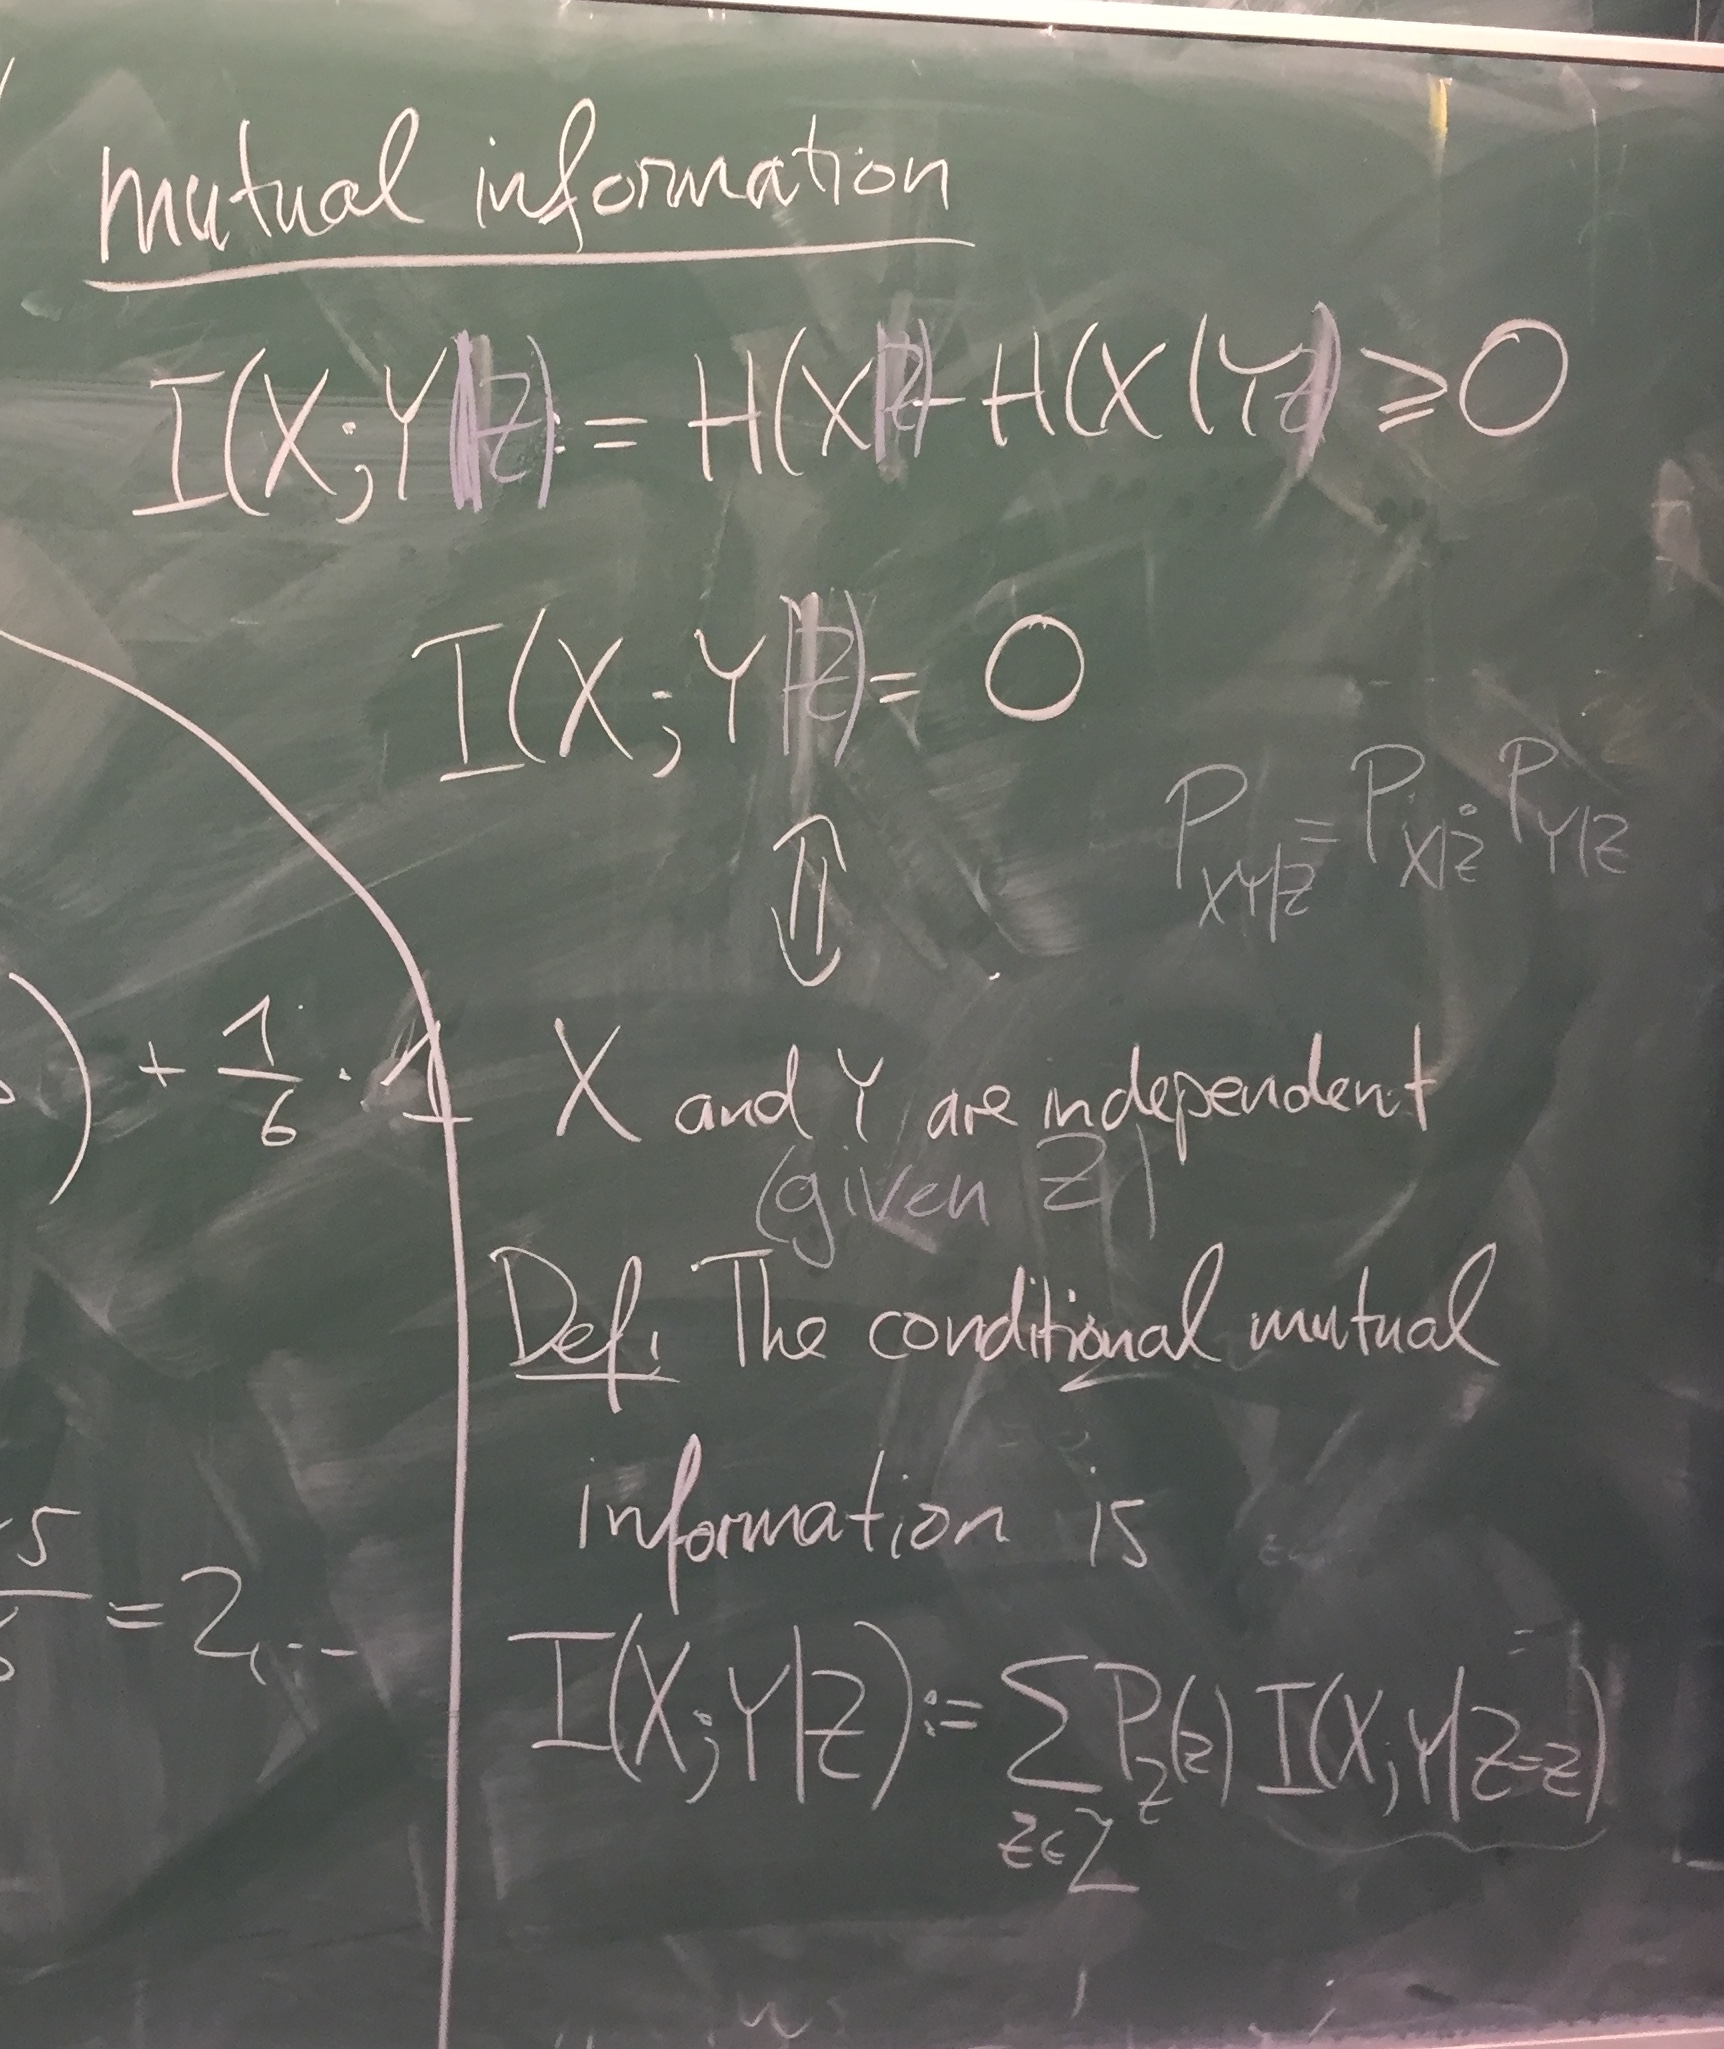 mutual information
I(X;Y|Z) := H(X|Z) - H(X|YZ) ⩾ 0
I(X;Y|Z) = 0
P_{XY|Z} = P_{X|Z} · P_{Y|Z}
⇕
) + 1/6 · 1
X and Y are independent
(given Z)
Def: The conditional mutual
information is
5
= 2,...
I(X;Y|Z) := ∑_{z∈Z} P_Z(z) I(X;Y|Z=z)